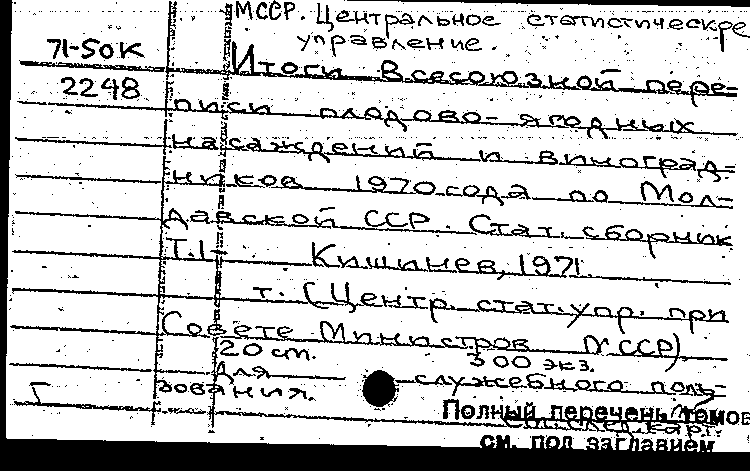 МССР. Центральное статистическое
управление.
71-50К
Итоги Всесоюзной пере-
2248
писи плодово-ягодных
насаждений и виноград-
ников 1970 года по Мол-
давской ССР. Стат. сборник
Т.1- Кишинев, 1971.
т. (Центр. стат. упр. при
Совете Министров МССР).
20 ст. 300 экз.
Для служебного поль-
зования.
Г
Полный перечень томов
см. след. карт.
см. под заглавием